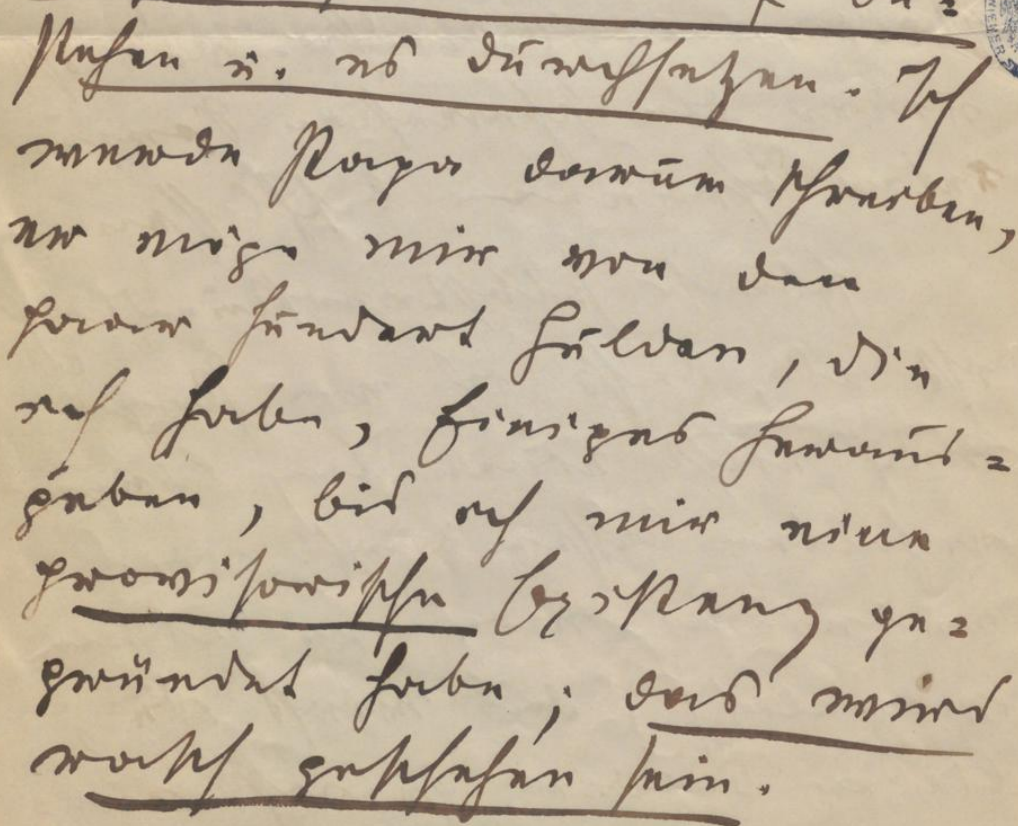 stehen u. es durchsetzen. Ich
werde Papa darum schreiben,
er möge mir von den
paar hundert Gulden, die
ich habe, Einiges heraus=
geben, bis ich mir eine
provisorische Existenz ge=
gründet habe; das wird
rasch geschehen sein.